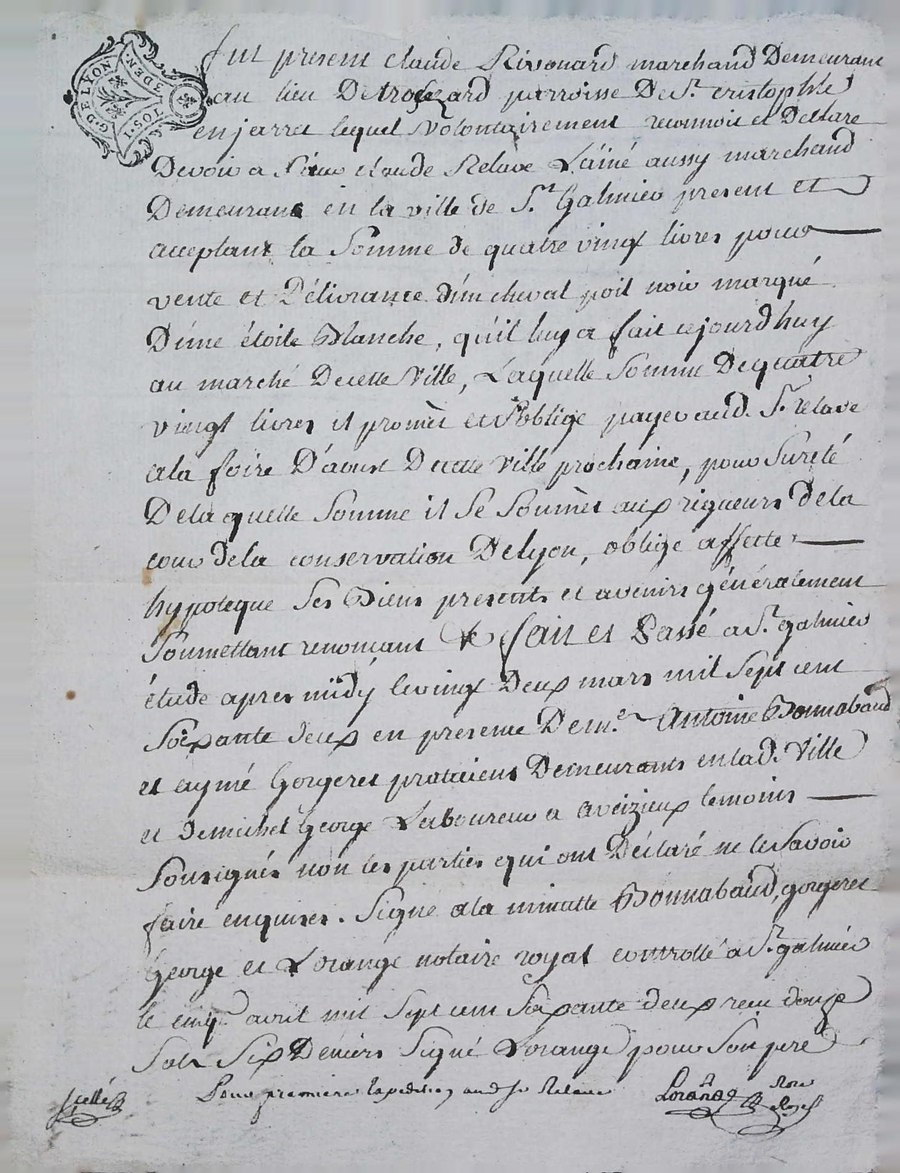 G. DE LYON
1. SOL 3 DEN.
fut present claude Rivouard marchand Demeurant
au lieu De parroisse De St. cristophle
en jarret lequel Volontairement reconnoit et Declare
Devoir a Sieur claude Relave L'ainé aussy marchand
Demeurant en la ville de St. Galmier present et
acceptant la Somme de quatre vingt livres pour
vente et Délivrance d'un cheval poil noir marqué
D'une étoile Blanche, qu'il luy a fait cejourd'huy
au marché Decette Ville, Laquelle Somme De quatre
vingt livres il promèt et S'oblige payer aud. Sr. relave
ala foire D'aoust Decette Ville prochaine, pour Sureté
De la quelle Somme il Se Soumèt aux rigueurs de la
cour de la conservation De Lyon, oblige affecte
hypoteque Ses Biens presents et avenirs généralement
Soumettant renonçant & fait et Passé a St. galmier
étude apres midy le vingt Deux mars mil Sept cent
Soixante deux en presence De me. Antoine Bonnabaud
et aymé Gorgeret praticiens Demeurants en lad. Ville
et de michel George Laboureur a aveizieux temoins
Soussignés non les parties qui ont Déclaré ne le Savoir
faire enquises. Signé ala minutte Bonnabaud, gorgeret
George et Lorange notaire royal controllé a St. galmier
le cinq avril mil Sept cent Soixante deux reçu douze
Sols Six Deniers Signé Lorange pour Son pere
Scellé
Pour premiere Expedition aud. Sr. Relave
Lorange